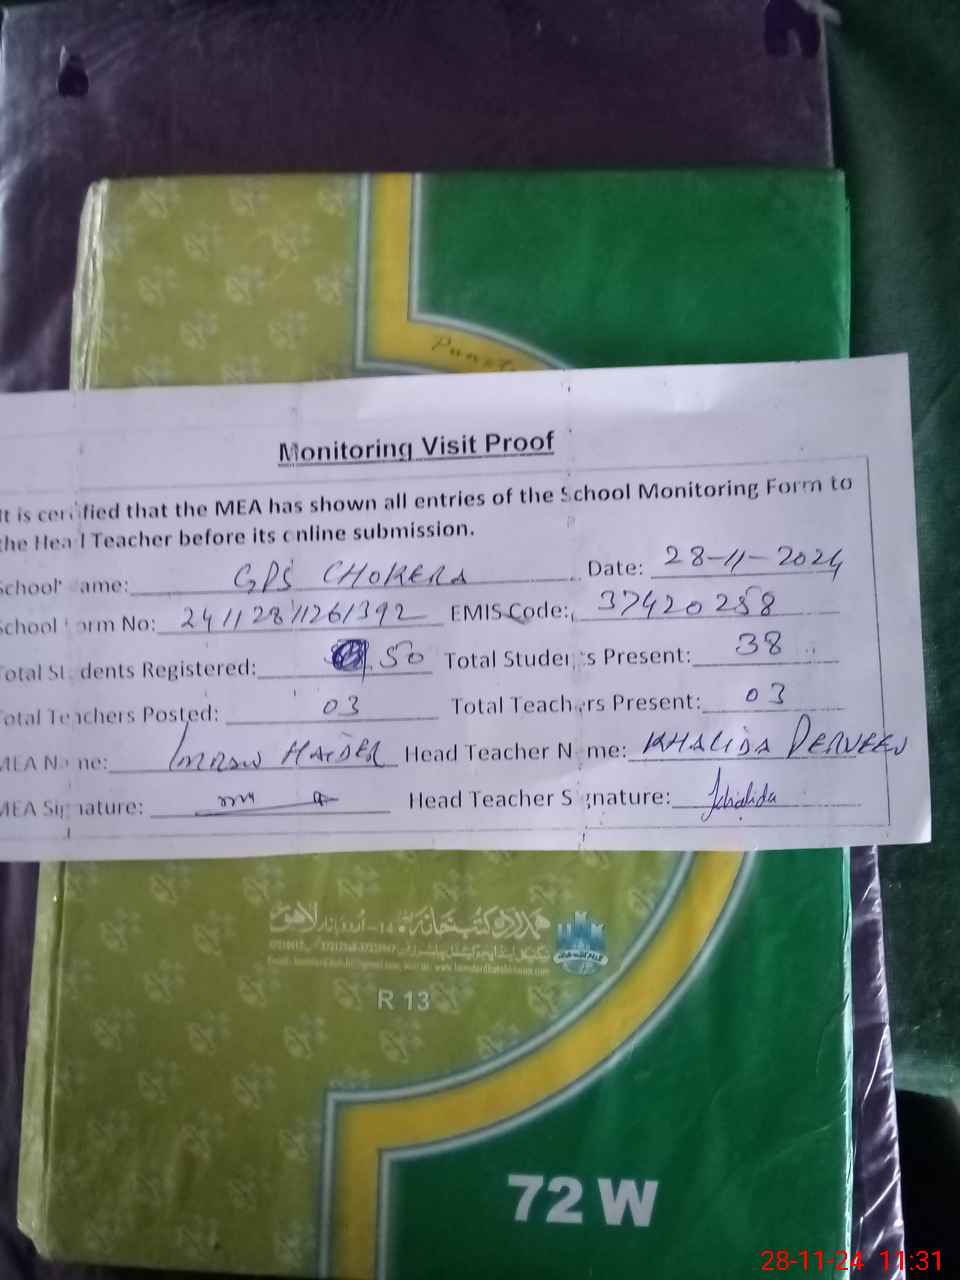 Monitoring Visit Proof
It is certified that the MEA has shown all entries of the School Monitoring Form to
the Head Teacher before its online submission.
School Name: GPS CHOKERA Date: 28-11-2024
School Form No: 24112811261392 EMIS Code: 37420258
Total Students Registered: 50 Total Students Present: 38
Total Teachers Posted: 03 Total Teachers Present: 03
MEA Name: IMRAN HAIDER Head Teacher Name: KHALIDA PERVEEN
MEA Signature: Head Teacher Signature: Khalida
ہمدرد کتب خانہ 14-اردو بازار لاہور
R 13
72 W
28-11-24 11:31